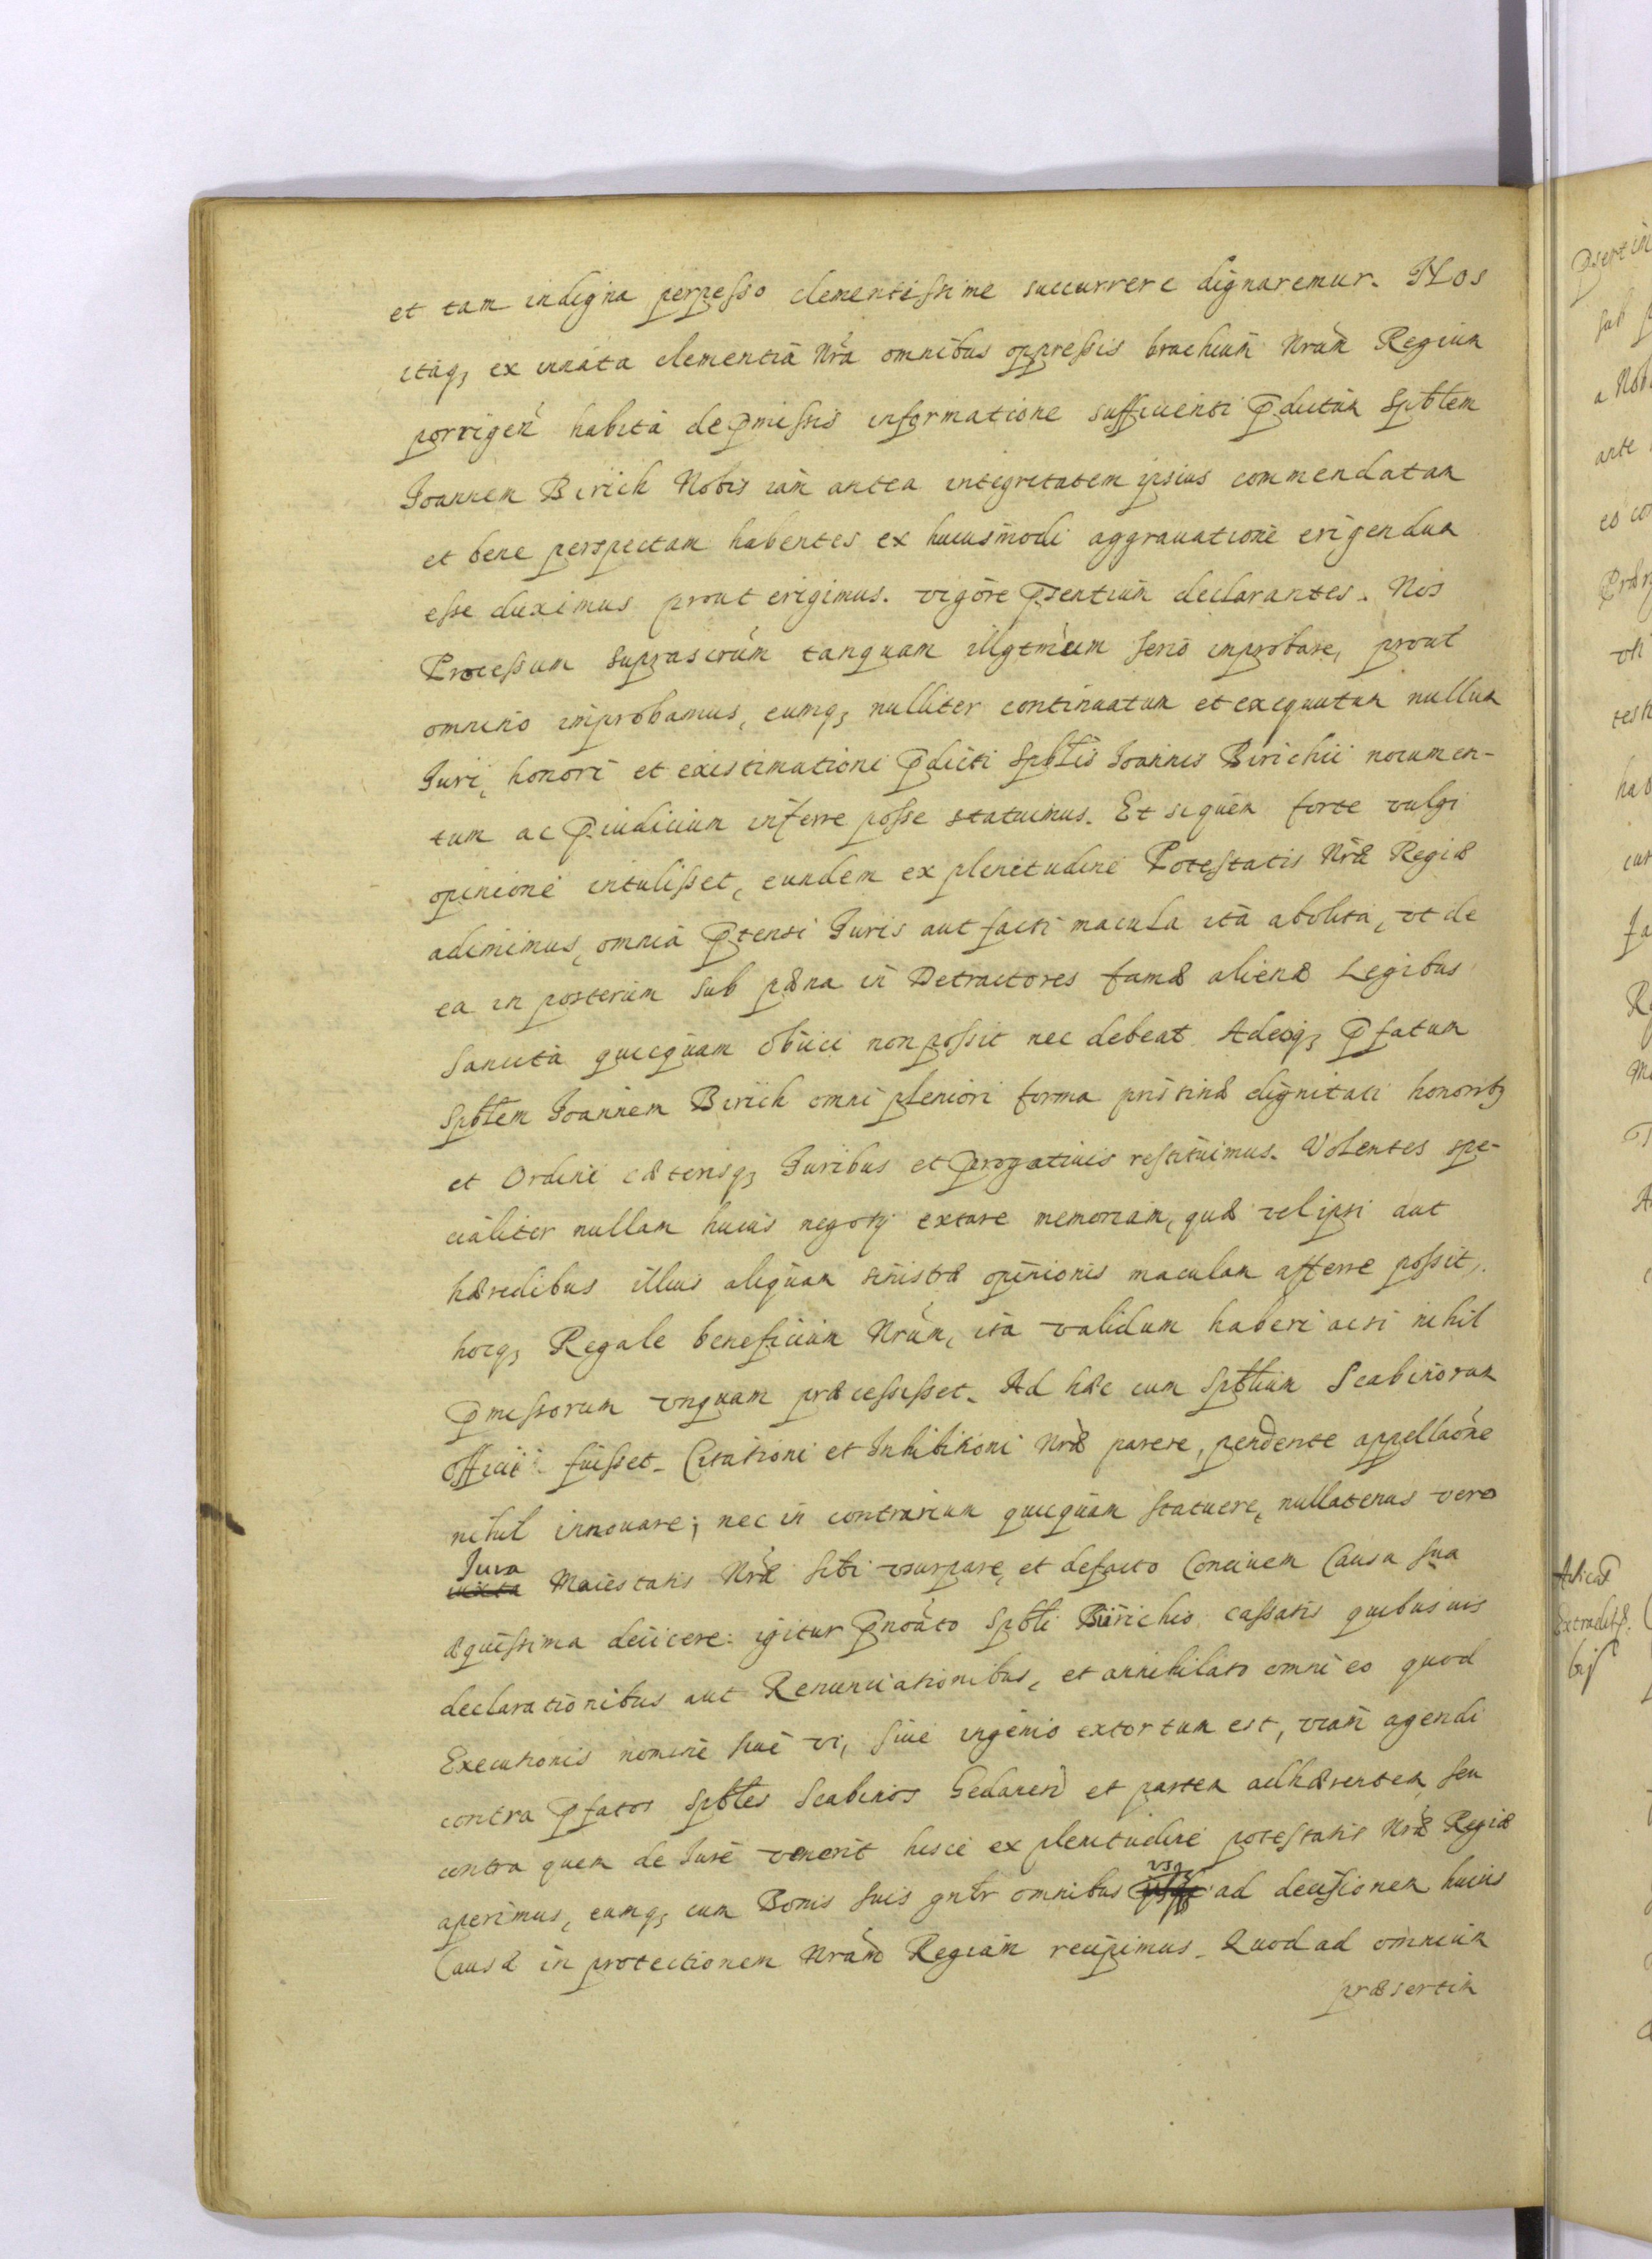 et tam indigna perpesso clementissime succurrere dignaremur. Nos
itaq₃ ex innata clementia Nrã omnibus oppressis brachium Nrũm Regium
porrigeñ habita de p̄missis informatione sufficienti p̄dictum Spbtem
Joannem Birich Nobis iam antea integritatem ipsius commendatam
et bene perspectam habentes ex huiusmodi aggrauatione erigendum
esse duximus prout erigimus. vigore p̄sentium declarantes. Nos
Processum suprascrũm tanquam illgtmeum serio improbare, prout
omnino improbamus, eumq₃ nulliter continuatum et exequutum nullum
Juri, honori et existimationi p̄dicti Spbtis Joannis Birichii nocumen-
tum ac p̄iudicium inferre posse statuimus. Et siquem forte vulgi
opinione intulisset, eundem ex plenitudine Potestatis Nræ Regiæ
adimimus, omnia p̄tensi Juris aut facti macula ita abolita, vt de
ea in posterum sub pæna in Detractores famæ alienæ Legibus
sancita quicquam obiici non possit nec debeat. Adeoq₃ p̄fatum
Spbtem Joannem Birich omni pleniori forma pristinæ dignitati honorib₃
et Ordini cæterisq₃ Juribus et p̄rogatiuis restituimus. Volentes spe-
cialiter nullam huius negotij extare memoriam, quæ vel ipsi aut
hæredibus illius aliquam sinistræ opinionis maculam afferre possit,
hocq₃ Regale beneficium Nrũm, ita validum haberi acsi nihil
p̄missorum vnquam præcessisset. Ad hæc cum Spbtium Scabinorum
officij fuisset. Citationi et Inhibitioni Nræ parere, pendente appellaõne
nihil innouare; nec in contrarium quicquam statuere, nullatenus vero
Jura
iuxta Maiestatis Nræ sibi vsurpare, et defacto Conciuem Causa sua
æquissima deiicere: igitur p̄noãto Spbti Birichio cassatis quibusuis
declarationibus aut Renunciationibus, et annihilato omni eo quod
Executionis nomine siue vi, siue ingenio extortum est, viam agendi
contra p̄fatos Spbtes Scabinos Gedaneñ et partem adhærentem, seu
contra quem de Jure venerit hisce ex plenitudine potestatis Nræ Regiæ
vsq₃
aperimus, eumq₃ cum Bonis suis gnlr omnibus ad decisionem huius
Causæ in protectionem Nrãm Regiam recipimus. Quod ad omnium
præsertim